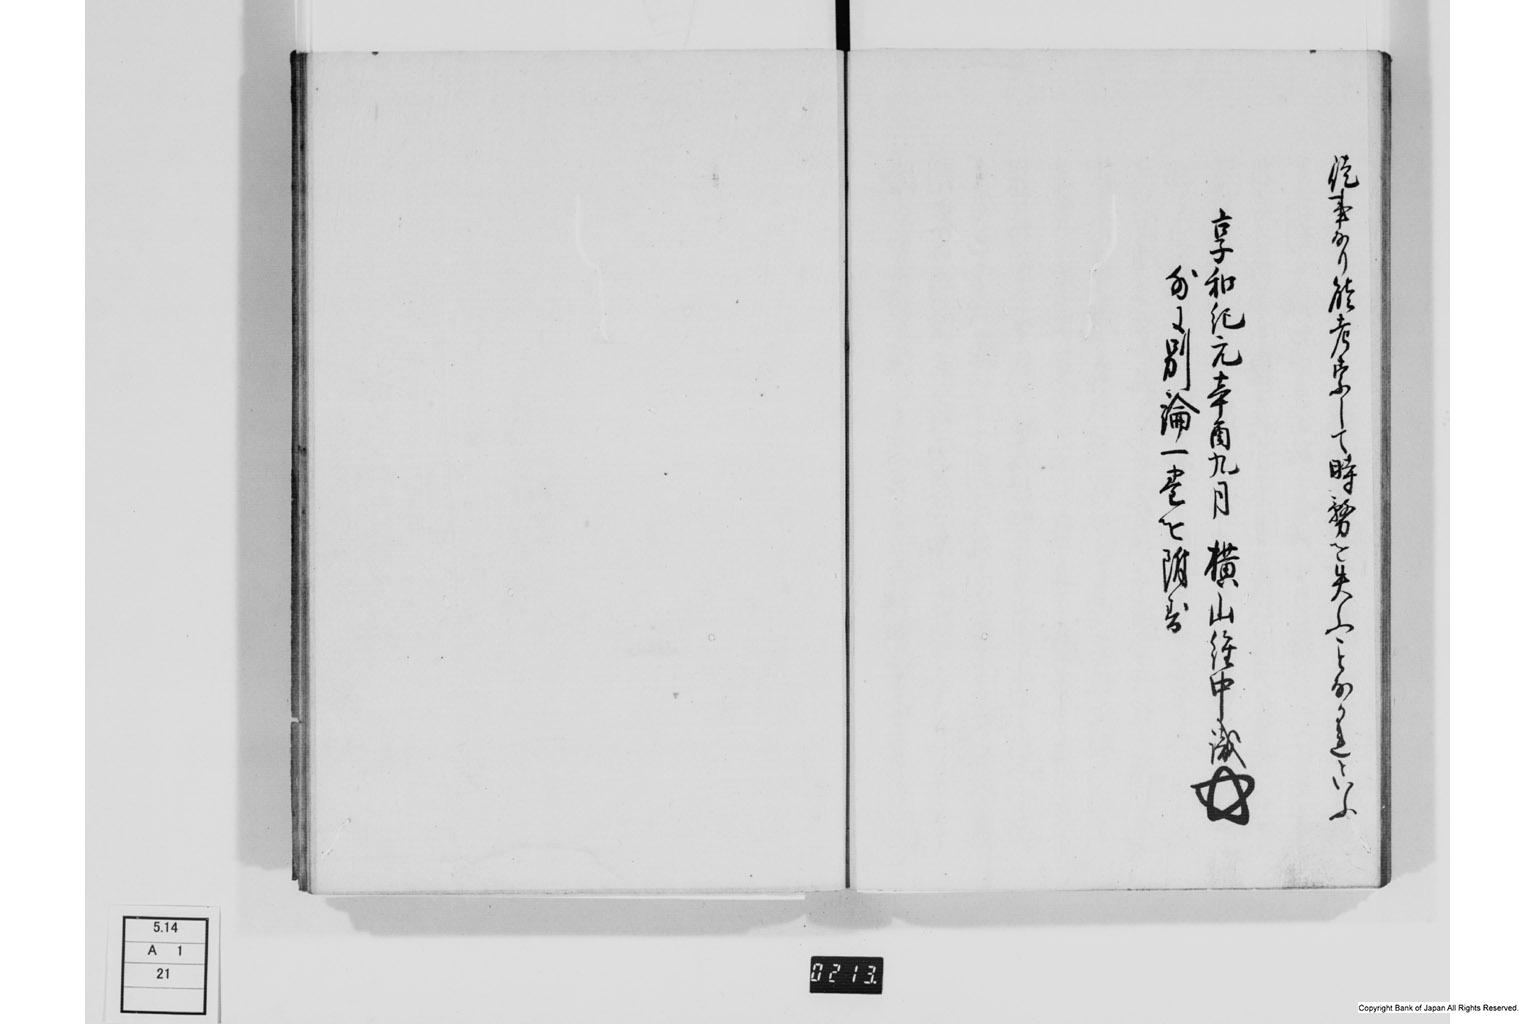 事なり能考索して時勢を失ふことなかれといふ
享和紀元辛酉九月 横山維中識
外に別論一書を附す
5.14
A 1
21
0213.
Copyright Bank of Japan All Rights Reserved.